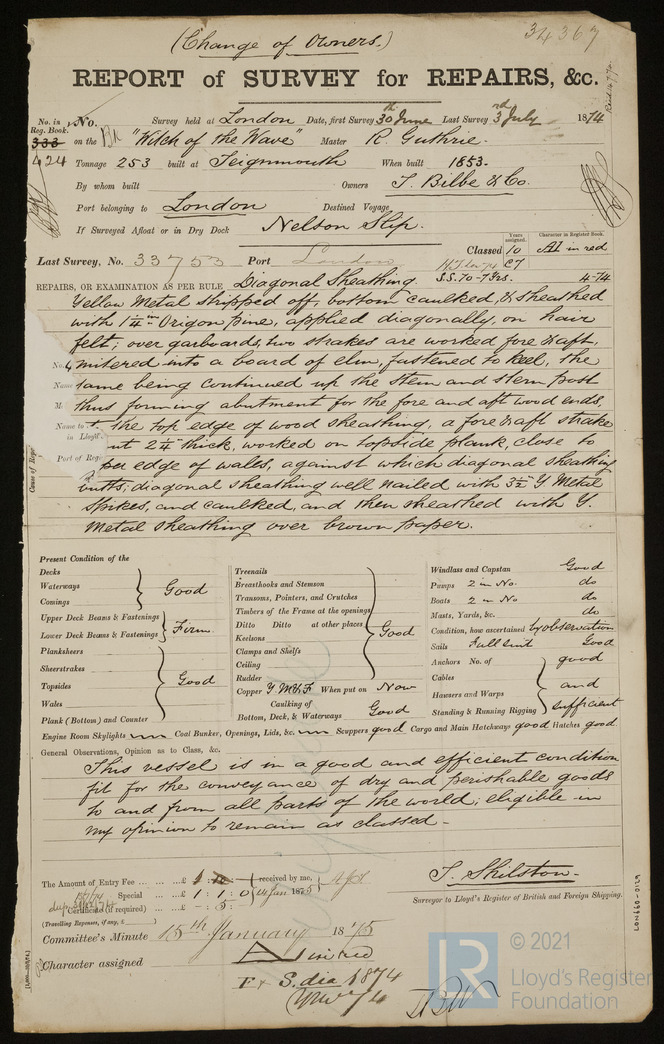 34367
(Change of Owners.)
REPORT of SURVEY for REPAIRS, &c.
No. in Reg. Book. No. Survey held at London Date, first Survey 30th June Last Survey 3rd July 1874
333 on the Bk "Witch of the Wave" Master R. Guthrie.
424 Tonnage 253 built at Teignmouth When built 1853.
By whom built Owners T. Bilbe & Co.
Port belonging to London Destined Voyage
If Surveyed Afloat or in Dry Dock Nelson Slip.
Years assigned. Character in Register Book.
Classed 10 A1 in red
Last Survey, No. 33753 Port London
S.S. 70-7Yrs. 4-74
REPAIRS, OR EXAMINATION AS PER RULE Diagonal Sheathing
Yellow Metal stripped off, bottom caulked, & sheathed
with 1 1/4 in Origon pine, applied diagonally, on hair
felt; over garboards, two strakes are worked fore & aft,
mitered into a board of elm, fastened to keel, the
same being continued up the stem and stern post
thus forming abutment for the fore and aft wood ends.
the top edge of wood sheathing, a fore & aft strake
2 1/4" thick, worked on topside plank, close to
per edge of wales, against which diagonal sheathing
butts; diagonal sheathing well nailed with 3 1/2" Y Metal
spikes, and caulked, and then sheathed with Y.
Metal sheathing over brown paper.
Present Condition of the
Decks
Waterways
Comings
Good
Upper Deck Beams & Fastenings
Lower Deck Beams & Fastenings
Firm
Planksheers
Sheerstrakes
Topsides
Wales
Plank (Bottom) and Counter
Good
Treenails
Breasthooks and Stemson
Transoms, Pointers, and Crutches
Timbers of the Frame at the openings
Ditto Ditto at other places
Keelsons
Clamps and Shelfs
Ceiling
Rudder
Good
Copper Y. M & F When put on Now
Caulking of
Bottom, Deck, & Waterways Good
Windlass and Capstan Good
Pumps 2 in No. do
Boats 2 in No do
Masts, Yards, &c. do
Condition, how ascertained by observation
Sails Full suit Good
Anchors No. of
Cables
Hawsers and Warps
Standing & Running Rigging
good and sufficient
Engine Room Skylights Coal Bunker, Openings, Lids, &c. Scuppers good Cargo and Main Hatchways good Hatches good
General Observations, Opinion as to Class, &c.
This vessel is in a good and efficient condition
fit for the conveyance of dry and perishable goods
to and from all parts of the world; eligible in
my opinion to remain as classed -
The Amount of Entry Fee £ received by me,
Special £ 1 : 1 : 0 14 Jan 1875
Certificate (if required) £ - : 5 :
(Travelling Expenses, if any, £
T. Shilston.
Surveyor to Lloyd's Register of British and Foreign Shipping.
Committee's Minute 15th January 1875
Character assigned A1 in red
F & S. dia 1874
LON660-0129
© 2021
LR
Lloyd's Register
Foundation